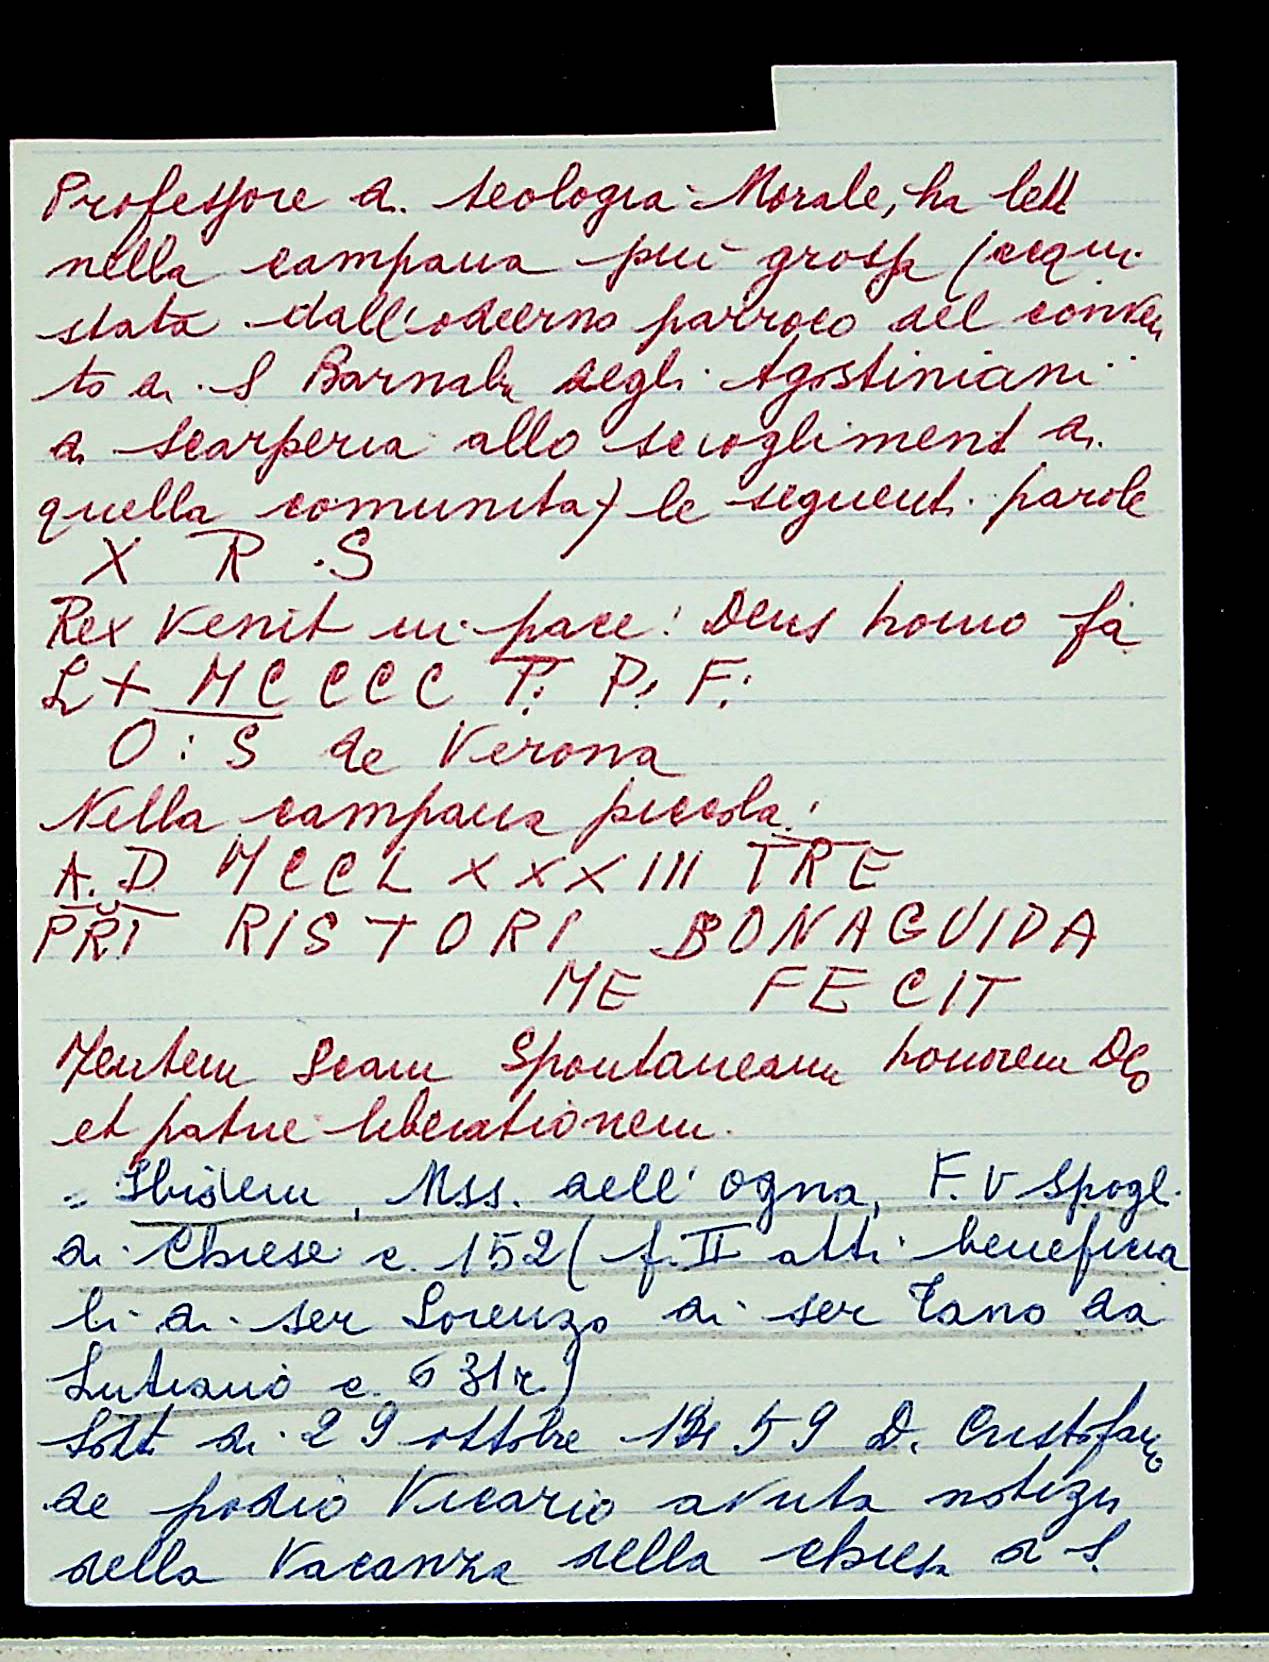 Professore di teologia Morale, ha lett
nella campana più grossa (acqui
stata dall'odierno parroco del conven
to di S Barnaba degli Agostiniani
di Scarperia allo scioglimento di
quella comunita) le seguenti parole
X R S
Rex Venit in pace: Deus homo fa
L + MC CCC P: P: F:
O : S de Verona
Nella campana piccola:
A.D MCCLXXXIII TRE
PRI RISTORI BONAGUIDA
ME FECIT
Mentem Scam Spontaneam honorem Deo
et patrie liberationem.
Ibidem, Mss. dell'Ogna, F. V Spogl.
di Chiese c. 152 (f. II atti beneficia
li di ser Lorenzo di ser Tano da
Lutiano c. 631r)
Sott di 29 ottobre 1459 D. Cristofano
de podio Vicario avuta notizia
della Vacanza della chiesa di S.